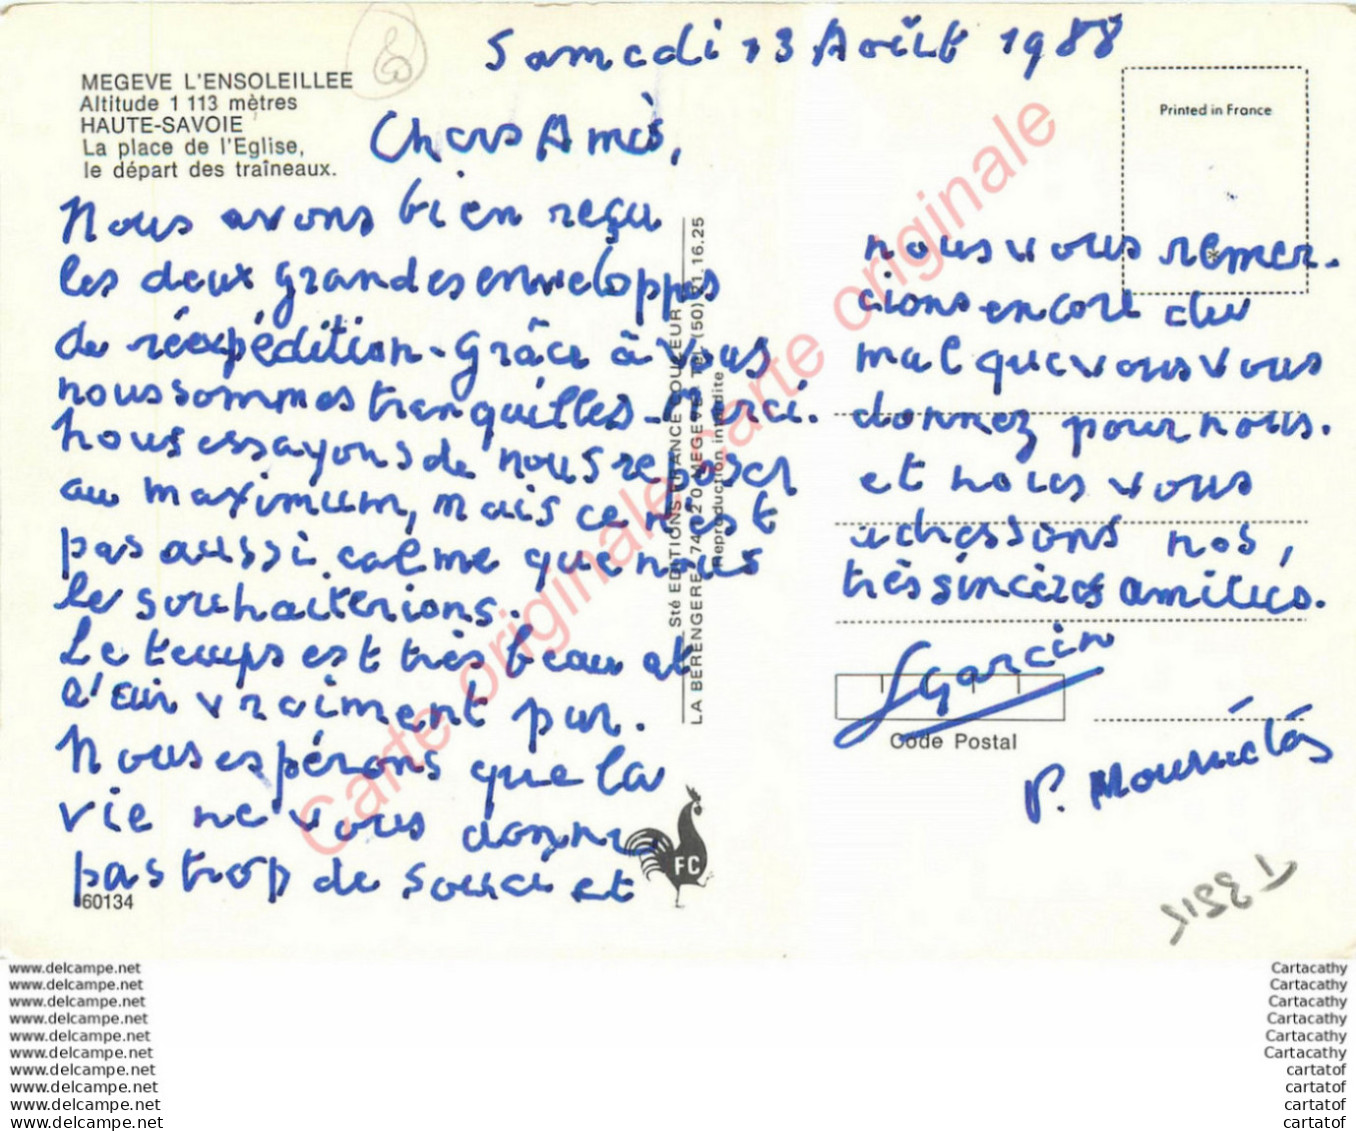 Samedi 13 Août 1988
MEGEVE L'ENSOLEILLEE
Altitude 1 113 mètres
HAUTE-SAVOIE
La place de l'Eglise,
le départ des traîneaux.
Chers Amis,
Nous avons bien reçu
les deux grandes enveloppes
de réexpédition - Grâce à vous
nous sommes tranquilles - Merci.
Nous essayons de nous reposer
au maximum, mais ce n'est
pas aussi calme que nous
le souhaiterions.
Le temps est très beau et
l'air vraiment pur.
Nous espérons que la
vie ne vous donne
pas trop de souci et
60134
Sté EDITIONS FRANCE COULEUR
LA BERENGERE 74120 MEGEVE Tél (50) 21.16.25
Reproduction interdite
FC
Printed in France
nous vous remer-
cions encore du
mal que vous vous
donnez pour nous.
et nous vous
adressons nos,
très sincères amitiés.
Garcin
Code Postal
P.
Carte originale Carte originale
www.delcampe.net
www.delcampe.net
www.delcampe.net
www.delcampe.net
www.delcampe.net
www.delcampe.net
www.delcampe.net
www.delcampe.net
www.delcampe.net
www.delcampe.net
Cartacathy
Cartacathy
Cartacathy
Cartacathy
Cartacathy
Cartacathy
cartatof
cartatof
cartatof
cartatof